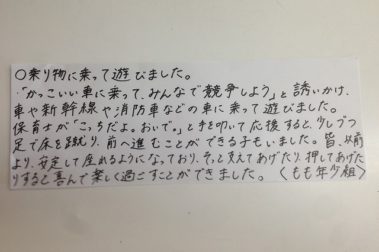 ○乗り物に乗って遊びました。
・「かっこいい車に乗って、みんなで競争しよう」と誘いかけ、
車や新幹線や消防車などの車に乗って遊びました。
保育士が「こっちだよ。おいで。」と手を叩いて応援すると、少しづつ
足で床を蹴り、前へ進むことができる子もいました。皆、以前
より、安定して座れるようになっており、そっと支えてあげたり、押してあげた
りすると喜んで楽しく過ごすことができました。〈もも年少組〉